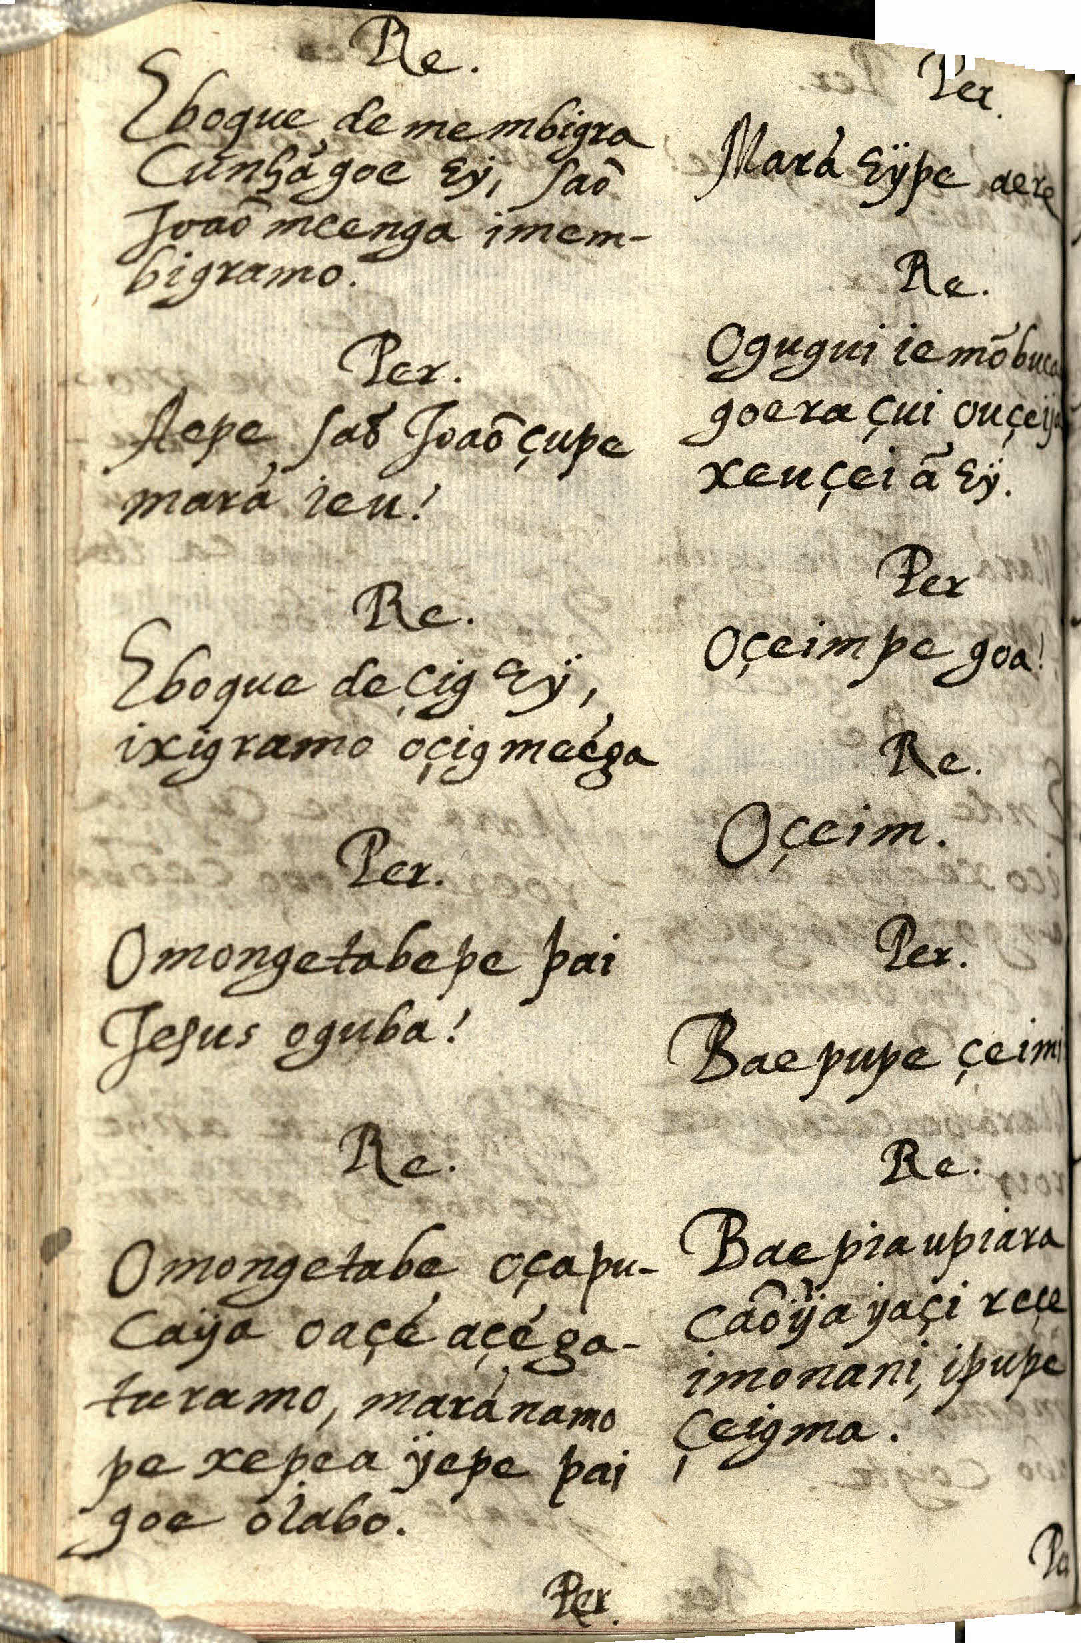 Re.
Eboque de me mbigra
Cunhá goe Eÿ, saõ
Joaõ mcenga imem-
bigramo.
Per.
Aepe saõ Joaõ çupe
mará ieu!
Re.
Eboque de çig Eÿ,
ixigramo oçig meéga
Per.
Omongetabepe pai
Jesus oguba!
Re.
Omongetabe oçapu-
caÿa oaçé açé ga-
turamo, maránamo
pe xepea ÿepe pai
goe olabo.
Per.
Per.
Mará Eÿpe aere
Re.
Ogugui iemõbuca
goera çui ouçeÿa
xeuçei ã Eÿ.
Per
Oçeimpe goa!
Re.
Oçeim.
Per.
Baepupe çeimi
Re.
Baepia upiara
caõÿa yaçi reçe
imonani, ipupe
çeigma.